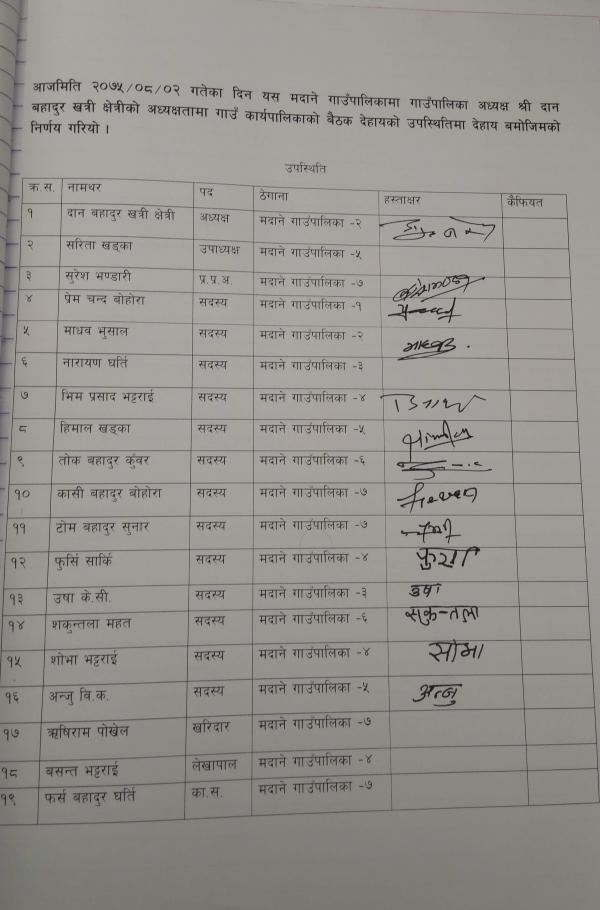 आजमिति २०७५/०८/०२ गतेका दिन यस मदाने गाउँपालिकामा गाउँपालिका अध्यक्ष श्री दान
बहादुर खत्री क्षेत्रीको अध्यक्षतामा गाउँ कार्यपालिकाको बैठक देहायको उपस्थितिमा देहाय बमोजिमको
निर्णय गरियो ।
उपस्थिति
क्र.स. नामथर पद ठेगाना हस्ताक्षर कैफियत
१ दान बहादुर खत्री क्षेत्री अध्यक्ष मदाने गाउँपालिका -२
२ सरिता खड्का उपाध्यक्ष मदाने गाउँपालिका -५
३ सुरेश भण्डारी प्र.प्र.अ. मदाने गाउँपालिका -७
४ प्रेम चन्द बोहोरा सदस्य मदाने गाउँपालिका -१
५ माधव भुसाल सदस्य मदाने गाउँपालिका -२ माधव
६ नारायण घर्ति सदस्य मदाने गाउँपालिका -३
७ भिम प्रसाद भट्टराई सदस्य मदाने गाउँपालिका -४
८ हिमाल खड्का सदस्य मदाने गाउँपालिका -५
९ तोक बहादुर कुँवर सदस्य मदाने गाउँपालिका -६
१० कासी बहादुर बोहोरा सदस्य मदाने गाउँपालिका -७
११ टोम बहादुर सुनार सदस्य मदाने गाउँपालिका -७
१२ फुर्सि सार्कि सदस्य मदाने गाउँपालिका -४
१३ उषा के.सी. सदस्य मदाने गाउँपालिका -३ उषा
१४ शकुन्तला महत सदस्य मदाने गाउँपालिका -६ सकुन्तला
१५ शोभा भट्टराई सदस्य मदाने गाउँपालिका -४ सोभा
१६ अन्जु वि.क. सदस्य मदाने गाउँपालिका -५ अन्जु
१७ ऋषिराम पोखेल खरिदार मदाने गाउँपालिका -७
१८ बसन्त भट्टराई लेखापाल मदाने गाउँपालिका -४
१९ फर्स बहादुर घर्ति का.स. मदाने गाउँपालिका -७